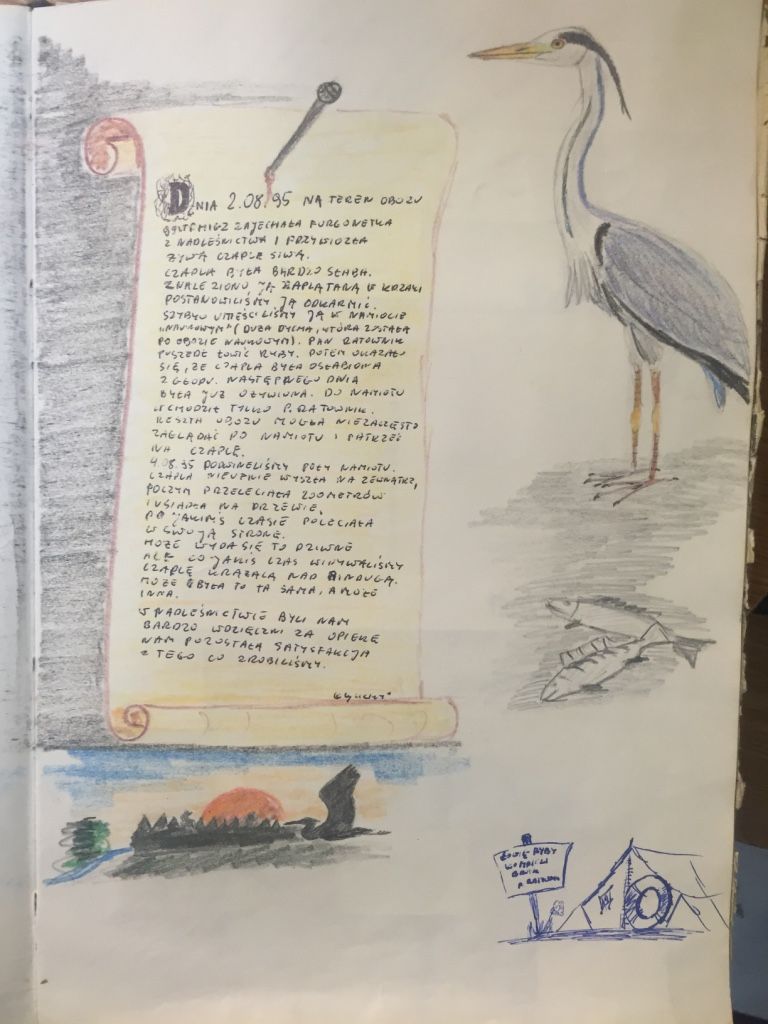 DNIA 2.08.95 NA TEREN OBOZU
ZAJECHAŁA FURGONETKA
Z NADLEŚNICTWA I PRZYWIOZŁA
ŻYWĄ CZAPLĘ SIWĄ.
CZAPLA BYŁA BARDZO SŁABA.
ZNALEZIONO JĄ ZAPLĄTANĄ W KRZAKI
POSTANOWILIŚMY JĄ ODKARMIĆ.
SZYBKO UMIEŚCILIŚMY JĄ W NAMIOCIE
"NAUKOWYM" (DUŻA DYCHA, KTÓRA ZOSTAŁA
PO OBOZIE NAUKOWYM). PAN RATOWNIK
POSZEDŁ ŁOWIĆ RYBY. POTEM OKAZAŁO
SIĘ, ŻE CZAPLA BYŁA OSŁABIONA
Z GŁODU. NASTĘPNEGO DNIA
BYŁA JUŻ OŻYWIONA. DO NAMIOTU
WCHODZIŁ TYLKO P. RATOWNIK.
RESZTA OBOZU MOGŁA NIEZACZĘSTO
ZAGLĄDAĆ DO NAMIOTU I PATRZEĆ
NA CZAPLĘ.
4.08.95 PODWINELIŚMY POŁY NAMIOTU.
CZAPLA NIEUFNIE WYSZŁA NA ZEWNĄTRZ,
POCZYM PRZELECIAŁA 200METRÓW
I USIADŁA NA DRZEWIE.
PO JAKIMŚ CZASIE POLECIAŁA
W SWOJĄ STRONĘ.
MOŻE WYDA SIĘ TO DZIWNE
ALE CO JAKIŚ CZAS WIDYWALIŚMY
CZAPLĘ KRĄŻĄCĄ NAD BINDUGĄ.
MOŻE BYŁA TO TA SAMA, A MOŻE
INNA.
W NADLEŚNICTWIE BYLI NAM
BARDZO WDZIĘCZNI ZA OPIEKĘ
NAM POZOSTAŁA SATYSFAKCJA
Z TEGO CO ZROBILIŚMY.
ŁOWIĘ RYBY